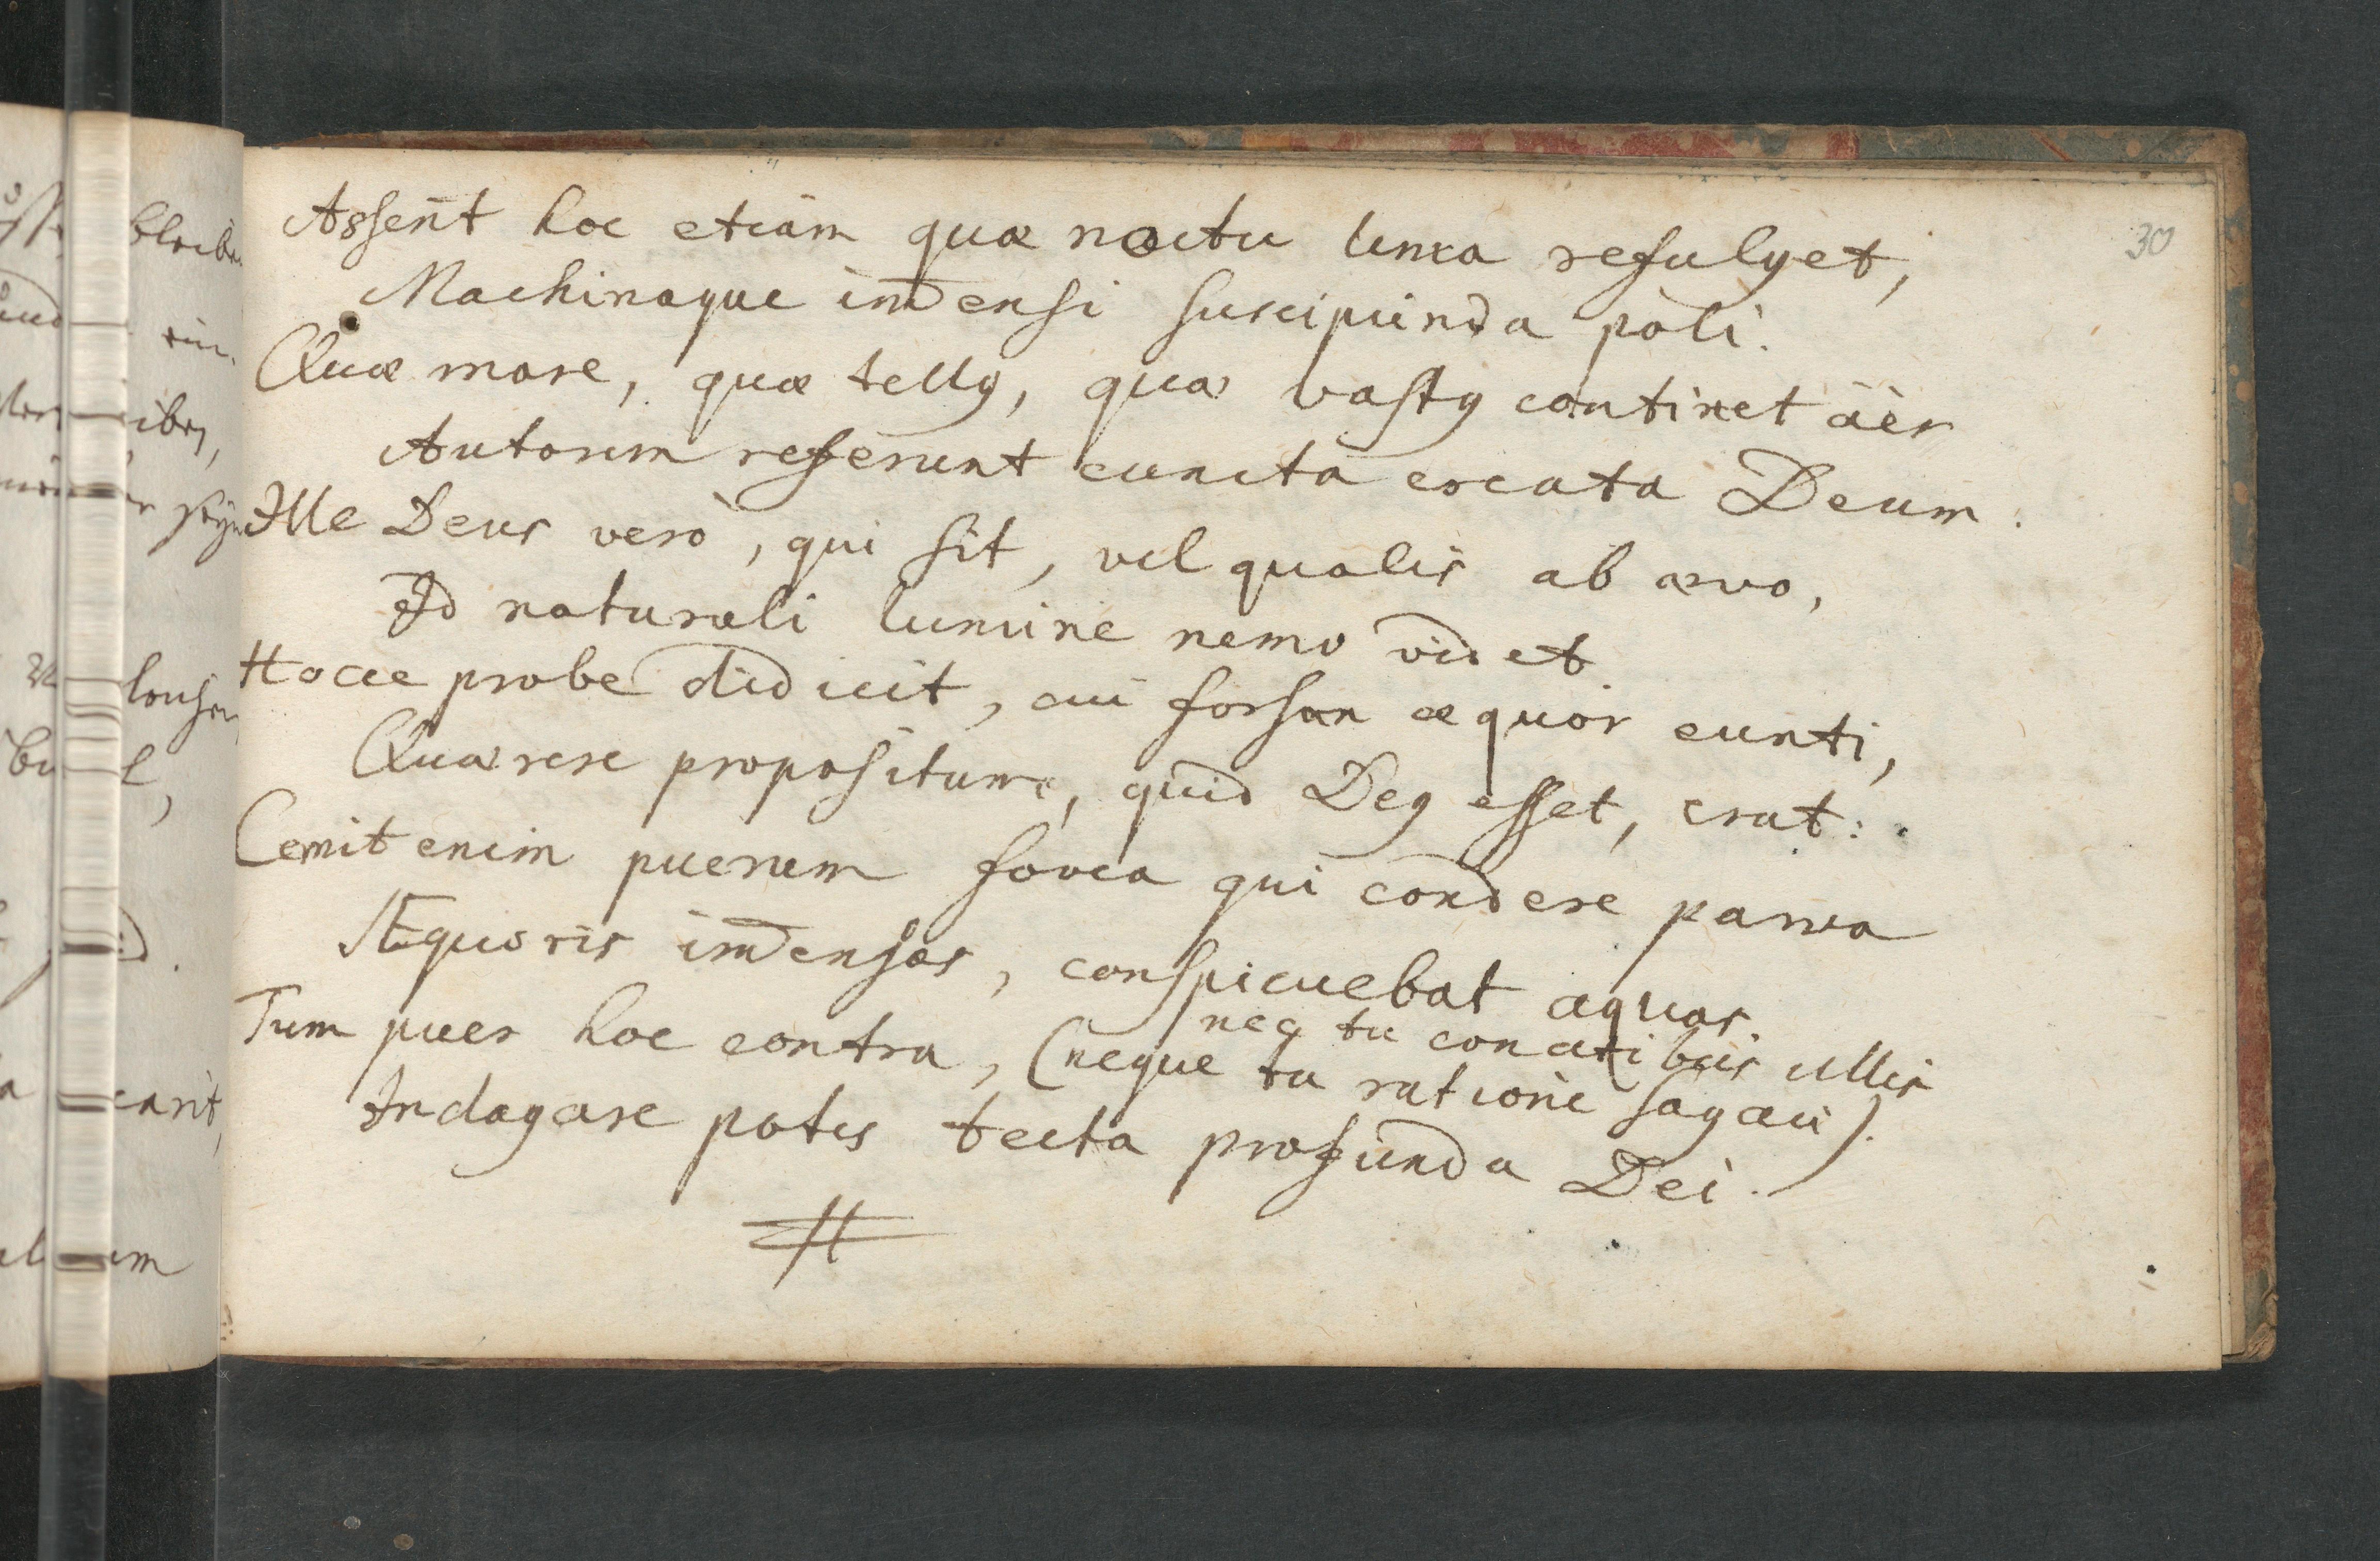 30
Asserit hoc etiam quæ noctu luna refulget,
Machinaque im̄ensi suscipiunda poli.
Quæ mare, quæ tellꝯ, quæ vastꝯ continet äer
Autorem referunt cuncta creata Deum.
Ille Deus verò, qui sit, vel qualis ab ævo,
Id naturali lumine nemo videt.
Hocce probe didicit, cui forsan æquor eunti,
Quærere propositum, quid Deꝯ esset, erat:
Cernit enim puerum fovea qui condere parva
Æquoris im̄ensas, conspiciebat aquas.
nec tu conatibus ullis
Tum puer hoc contra, (neque tu ratione sagaci).
Indagare potis tecta profunda Dei.